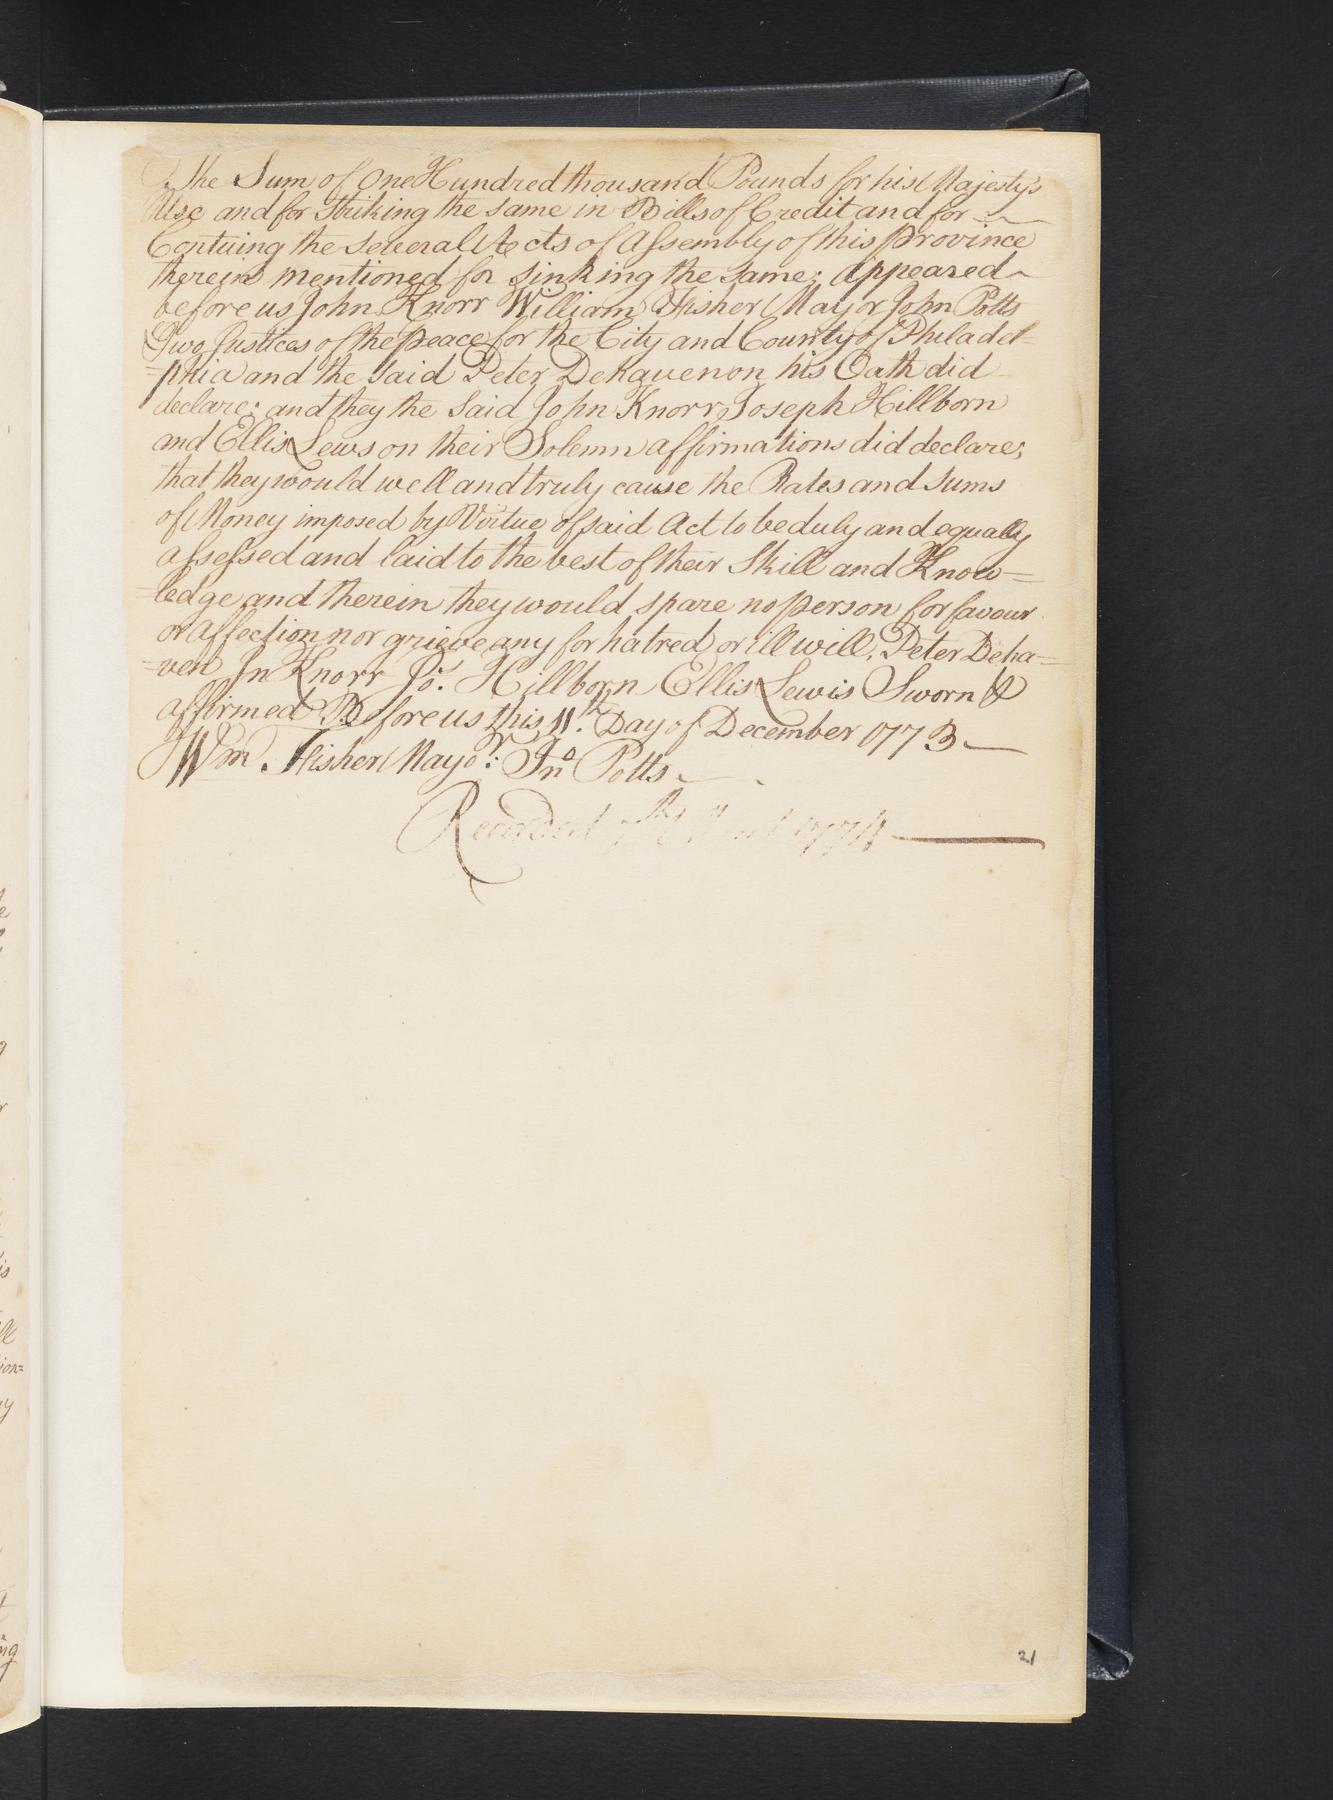 The Sum of One Hundred thousand Pounds for his Majesty's
Use and for Striking the same in Bills of Credit and for
Contuing the several Acts of Assembly of this province
therein mentioned for sinking the same; appeared
before us John Knorr William Fisher Mayor John Potts
Two Justices of the peace for the City and County of Philadel-
=phia and the said Peter DeHaven on his Oath did
declare; and they the Said John Knorr Joseph Hillborn
and Ellis Lews on their Solemn affirmations did declare;
that they would well and truly cause the Rates and Sums
of Money imposed by Virtue of said Act to be duly and equally
assessed and laid to the best of their Skill and Know=
=ledge and therein they would spare no person for favour
or affection nor grieve any for hatred or ill will. Peter Deha=
=ven Jn Knorr Jos. Hillborn Ellis Lewis Sworn &
affirmed Before us this 11th. Day of December 1773
Wm. Fisher Mayor: Jno Potts
Recorded 1774
21